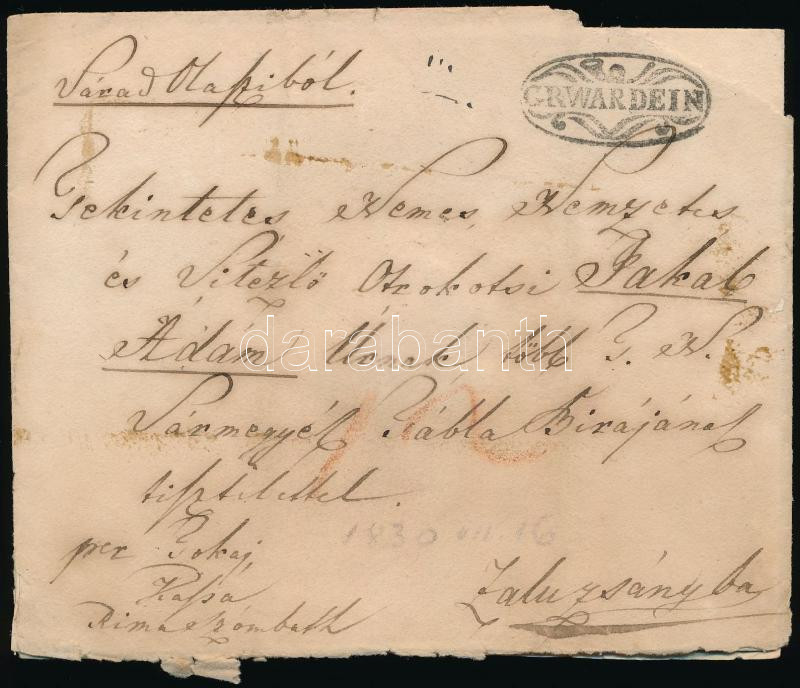 Várad Olasziból.
GRWARDEIN
Tekintetes Nemes, Nemzetes
és Vitézlő Otrokotsi Fakal
Ádám Úrnek több T. N.
Vármegyék Tábla Birájának
tisztelettel.
1830 VII. 16
per Tokaj
Kassa
Rima Szombath
Zaluzsányba
darabanth